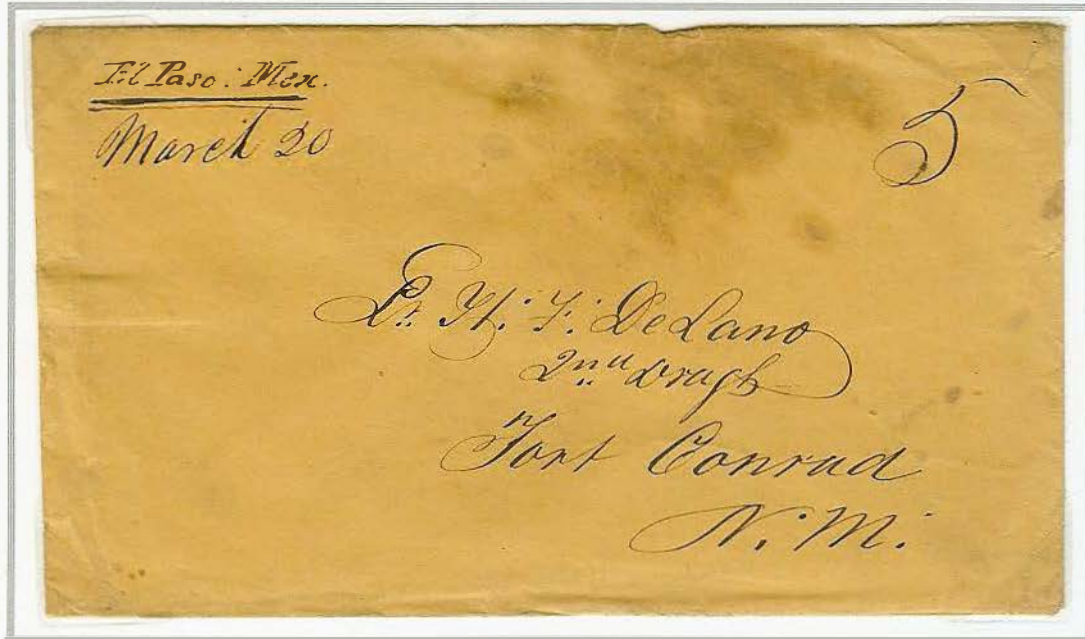 El Paso. Mex.
March 20
5
Lt. H. F. DeLano
2nd Drags
Fort Conrad
N. M.